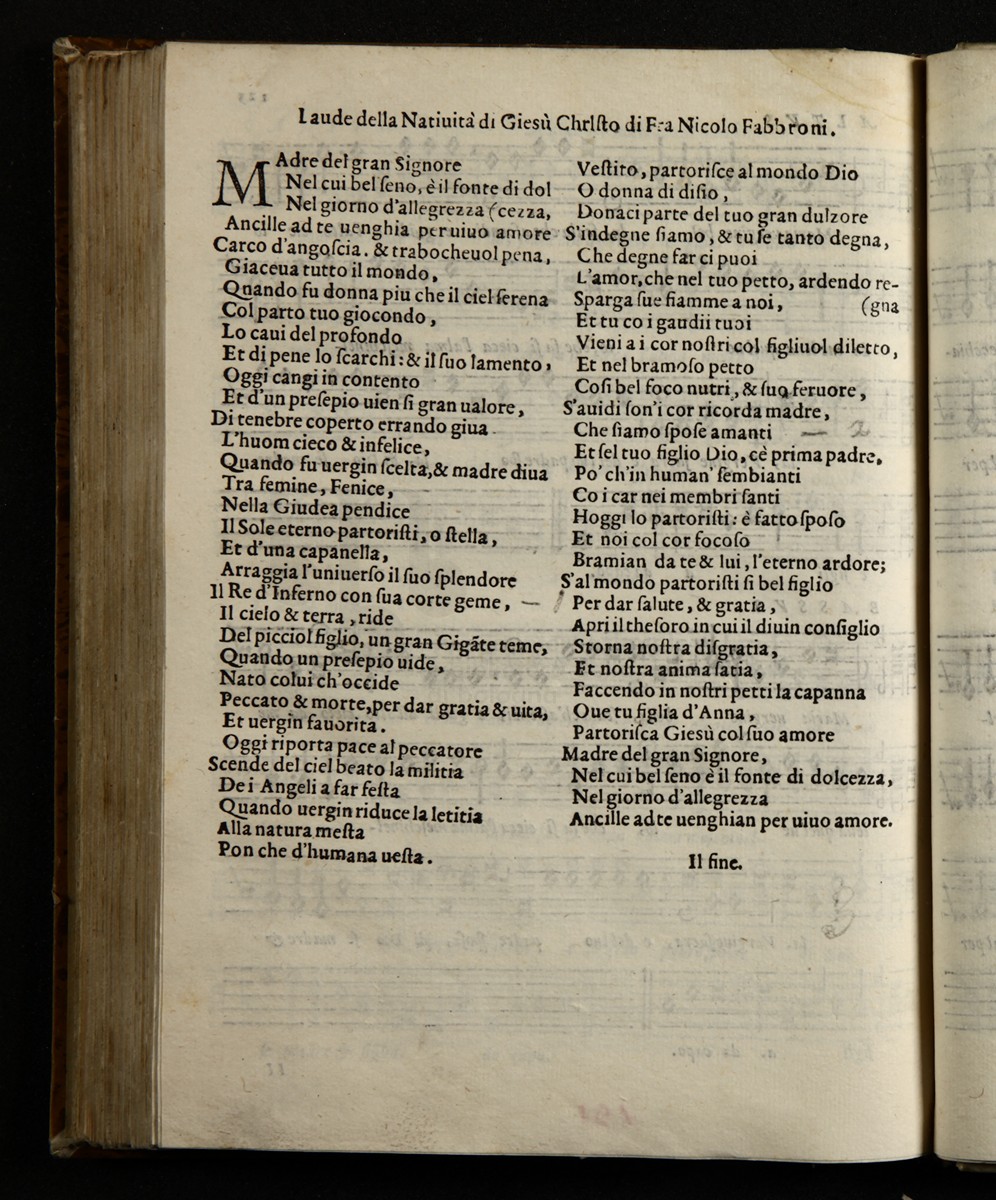 Laude della Natiuità di Giesù Chrisſto di Fra Nicolo Fabbroni.
MAdre del gran Signore
Nel cui bel ſeno, è il fonte di dol
Nel giorno d'allegrezza (cezza,
Ancille ad te uenghia per uiuo amore
Carco d'angoſcia. & trabocheuol pena,
Giaceua tutto il mondo,
Quando fu donna piu che il ciel ſerena
Col parto tuo giocondo,
Lo caui del profondo
Et di pene lo ſcarchi: & il ſuo lamento,
Oggi cangi in contento
Et d'un preſepio uien ſi gran ualore,
Di tenebre coperto errando giua
L'huom cieco & infelice,
Quando fu uergin ſcelta, & madre diua
Tra femine, Fenice,
Nella Giudea pendice
Il Sole eterno partoriſti, o ſtella,
Et d'una capanella,
Arraggia l'uniuerſo il ſuo ſplendore
Il Re d'Inferno con ſua corte geme,
Il cielo & terra, ride
Del picciol figlio, un gran Gigāte teme,
Quando un preſepio uide,
Nato colui ch'occide
Peccato & morte, per dar gratia & uita,
Et uergin fauorita.
Oggi riporta pace al peccatore
Scende del ciel beato la militia
De i Angeli a far feſta
Quando uergin riduce la letitia
Alla natura meſta
Pon che d'humana ueſta.
Veſtito, partoriſce al mondo Dio
O donna di diſio,
Donaci parte del tuo gran dulzore
S'indegne ſiamo, & tu ſe tanto degna,
Che degne far ci puoi
L'amor, che nel tuo petto, ardendo re-
Sparga ſue fiamme a noi, (gna
Et tu co i gaudii tuoi
Vieni a i cor noſtri col figliuol diletto,
Et nel bramoſo petto
Coſi bel foco nutri, & ſuo feruore,
S'auidi ſon'i cor ricorda madre,
Che ſiamo ſpoſe amanti
Et ſel tuo figlio Dio, cè prima padre,
Po' ch'in human' ſembianti
Co i car nei membri ſanti
Hoggi lo partoriſti: è fatto ſpoſo
Et noi col cor focoſo
Bramian da te & lui, l'eterno ardore;
S'al mondo partoriſti ſi bel figlio
Per dar ſalute, & gratia,
Apri il theſoro in cui il diuin conſiglio
Storna noſtra diſgratia,
Et noſtra anima ſatia,
Faccendo in noſtri petti la capanna
Oue tu figlia d'Anna,
Partoriſca Giesù col ſuo amore
Madre del gran Signore,
Nel cui bel ſeno è il fonte di dolcezza,
Nel giorno d'allegrezza
Ancille ad te uenghian per uiuo amore.
Il fine.